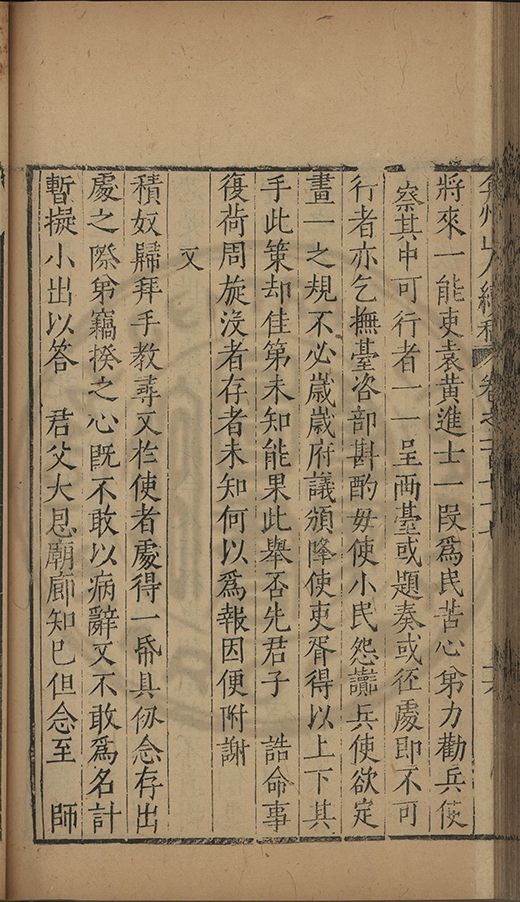 弇州山人續稿 卷之一百七十七
將來一能吏袁黃進士一段爲民苦心弟力勸兵使
察其中可行者一一呈两臺或題奏或径處即不可
行者亦乞撫臺咨部斟酌毋使小民怨讟兵使欲定
畫一之規不必歲歲府議頒降使吏胥得以上下其
手此策却佳第未知能果此舉否先君子 誥命事
復荷周旋没者存者未知何以爲報因便附謝
又
積奴歸拜手教尋又於使者處得一帋具仞念存出
處之際弟竊揆之心既不敢以病辭又不敢爲名計
暫擬小出以答 君父大恩廟廊知已但念至 師